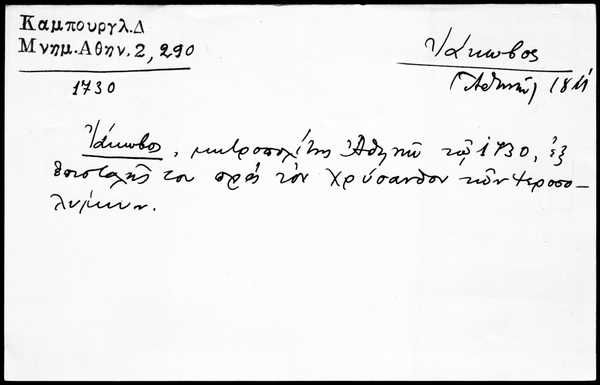 Καμπουργλ.Δ
Μνημ.Αθην.2,290
1730
Ἰάκωβος
(Ἀθηνῶν) 18
Ἰάκωβος, μητροπολίτης Ἀθηνῶν τῷ 1730, ἐξ
ἐπιστολῆς του πρὸς τὸν Χρύσανθον τῶν Ἱεροσο-
λύμων.